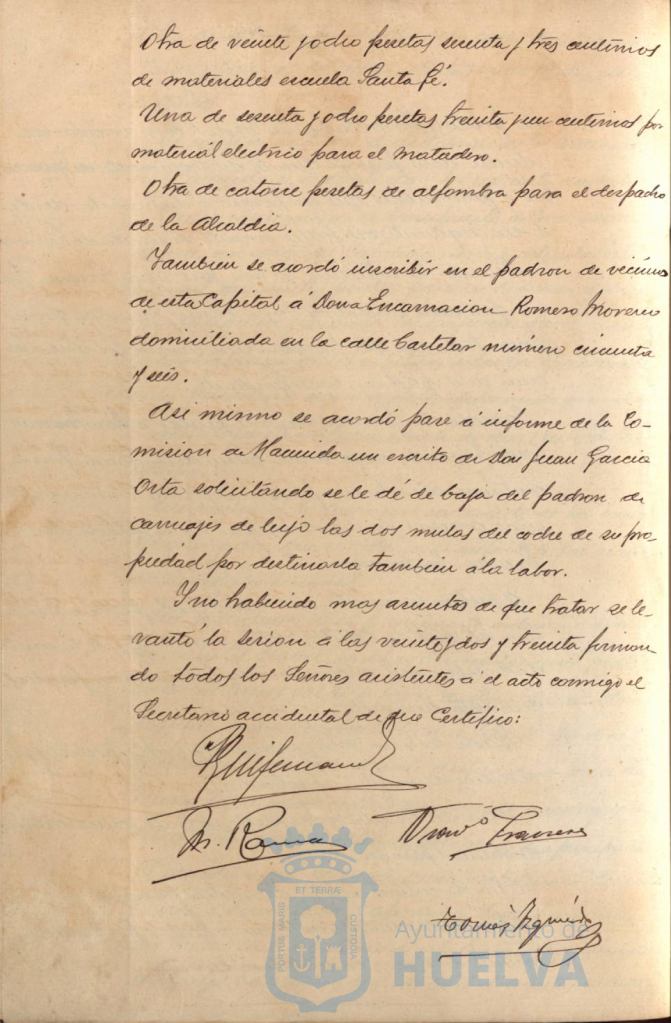 Otra de veinte y ocho pesetas sesenta y tres centimos
de materiales escuela Santa Fé.
Una de sesenta y ocho pesetas treinta y un centimos por
material electrico para el matadero.
Otra de catorce pesetas de alfombra para el despacho
de la Alcaldia.
Tambien se acordó inscribir en el padron de vecinos
de esta Capital á Doña Encarnacion Romero Moreno
domiciliada en la calle Castelar número cincuenta
y seis.
Asi mismo se acordó pase á informe de la Co-
mision de Hacienda un escrito de Don Juan Garcia
Orta solicitando se le dé de baja del padron de
carruajes de lujo las dos mulas del coche de su pro-
piedad por destinarla tambien á la labor.
Y no habiendo mas asuntos de que tratar se le-
vantó la sesion á las veinte y dos y treinta firman-
do todos los Señores asistentes á el acto conmigo el
Secretario accidental de que Certifico:
M. Rama
Tomás Izquierdo
PORTUS MARIS ET TERRÆ CUSTODIA
Ayuntamiento de
HUELVA